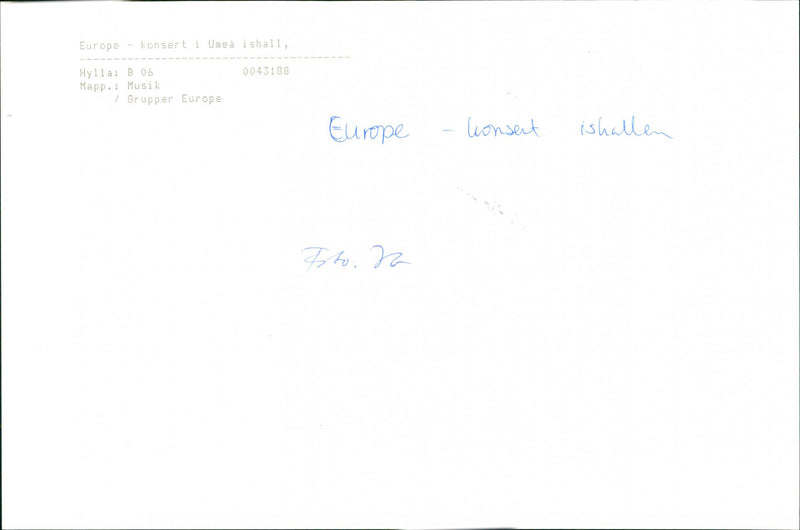 Europe - konsert i Umeå ishall,
Hylla: B 06 0043188
Mapp.: Musik
/ Grupper Europe
Europe - konsert ishallen
Foto.